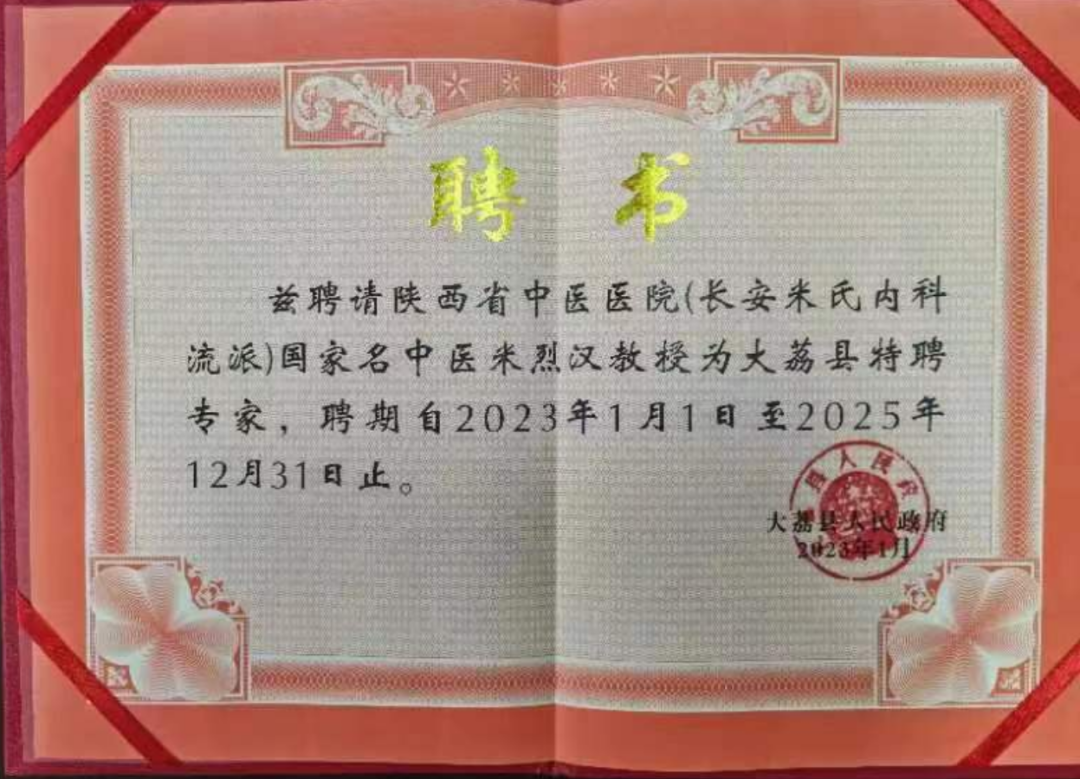 聘书
兹聘请陕西省中医医院(长安米氏内科
流派)国家名中医米烈汉教授为大荔县特聘
专家，聘期自2023年1月1日至2025年
12月31日止。
大荔县人民政府
2023年1月
县人民政